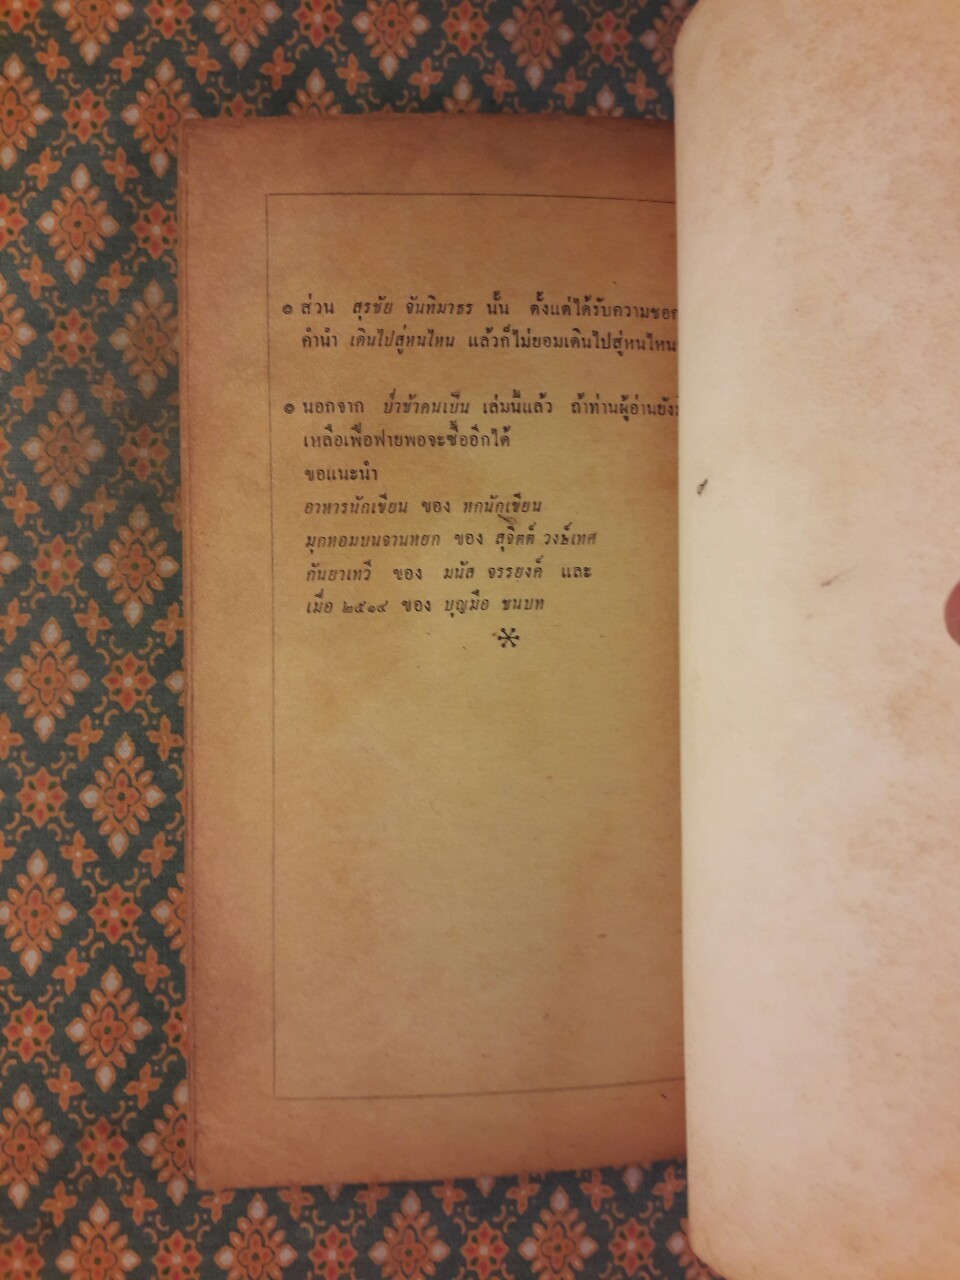 ๑ ส่วน สุรชัย จันทิมาธร นั้น ตั้งแต่ได้รับความชอก
คำนำ เดินไปสู่หนไหน แล้วก็ไม่ยอมเดินไปสู่หนไหน
๑ นอกจาก ป่าช้าคนเป็น เล่มนี้แล้ว ถ้าท่านผู้อ่านยัง
เหลือเพื่อฟายพอจะซื้ออีกได้
ขอแนะนำ
อาหารนักเขียน ของ หกนักเขียน
มุกหอมบนจานหยก ของ สุจิตต์ วงษ์เทศ
กันยาเทวี ของ มนัส จรรยงค์ และ
เมื่อ ๒๕๑๔ ของ บุญมือ ชนบท